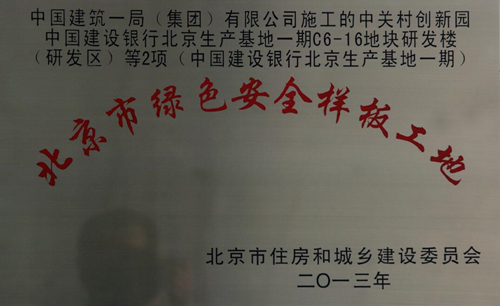 中国建筑一局（集团）有限公司施工的中关村创新园
中国建设银行北京生产基地一期C6-16地块研发楼
（研发区）等2项（中国建设银行北京生产基地一期）
北京市绿色安全样板工地
北京市住房和城乡建设委员会
二〇一三年